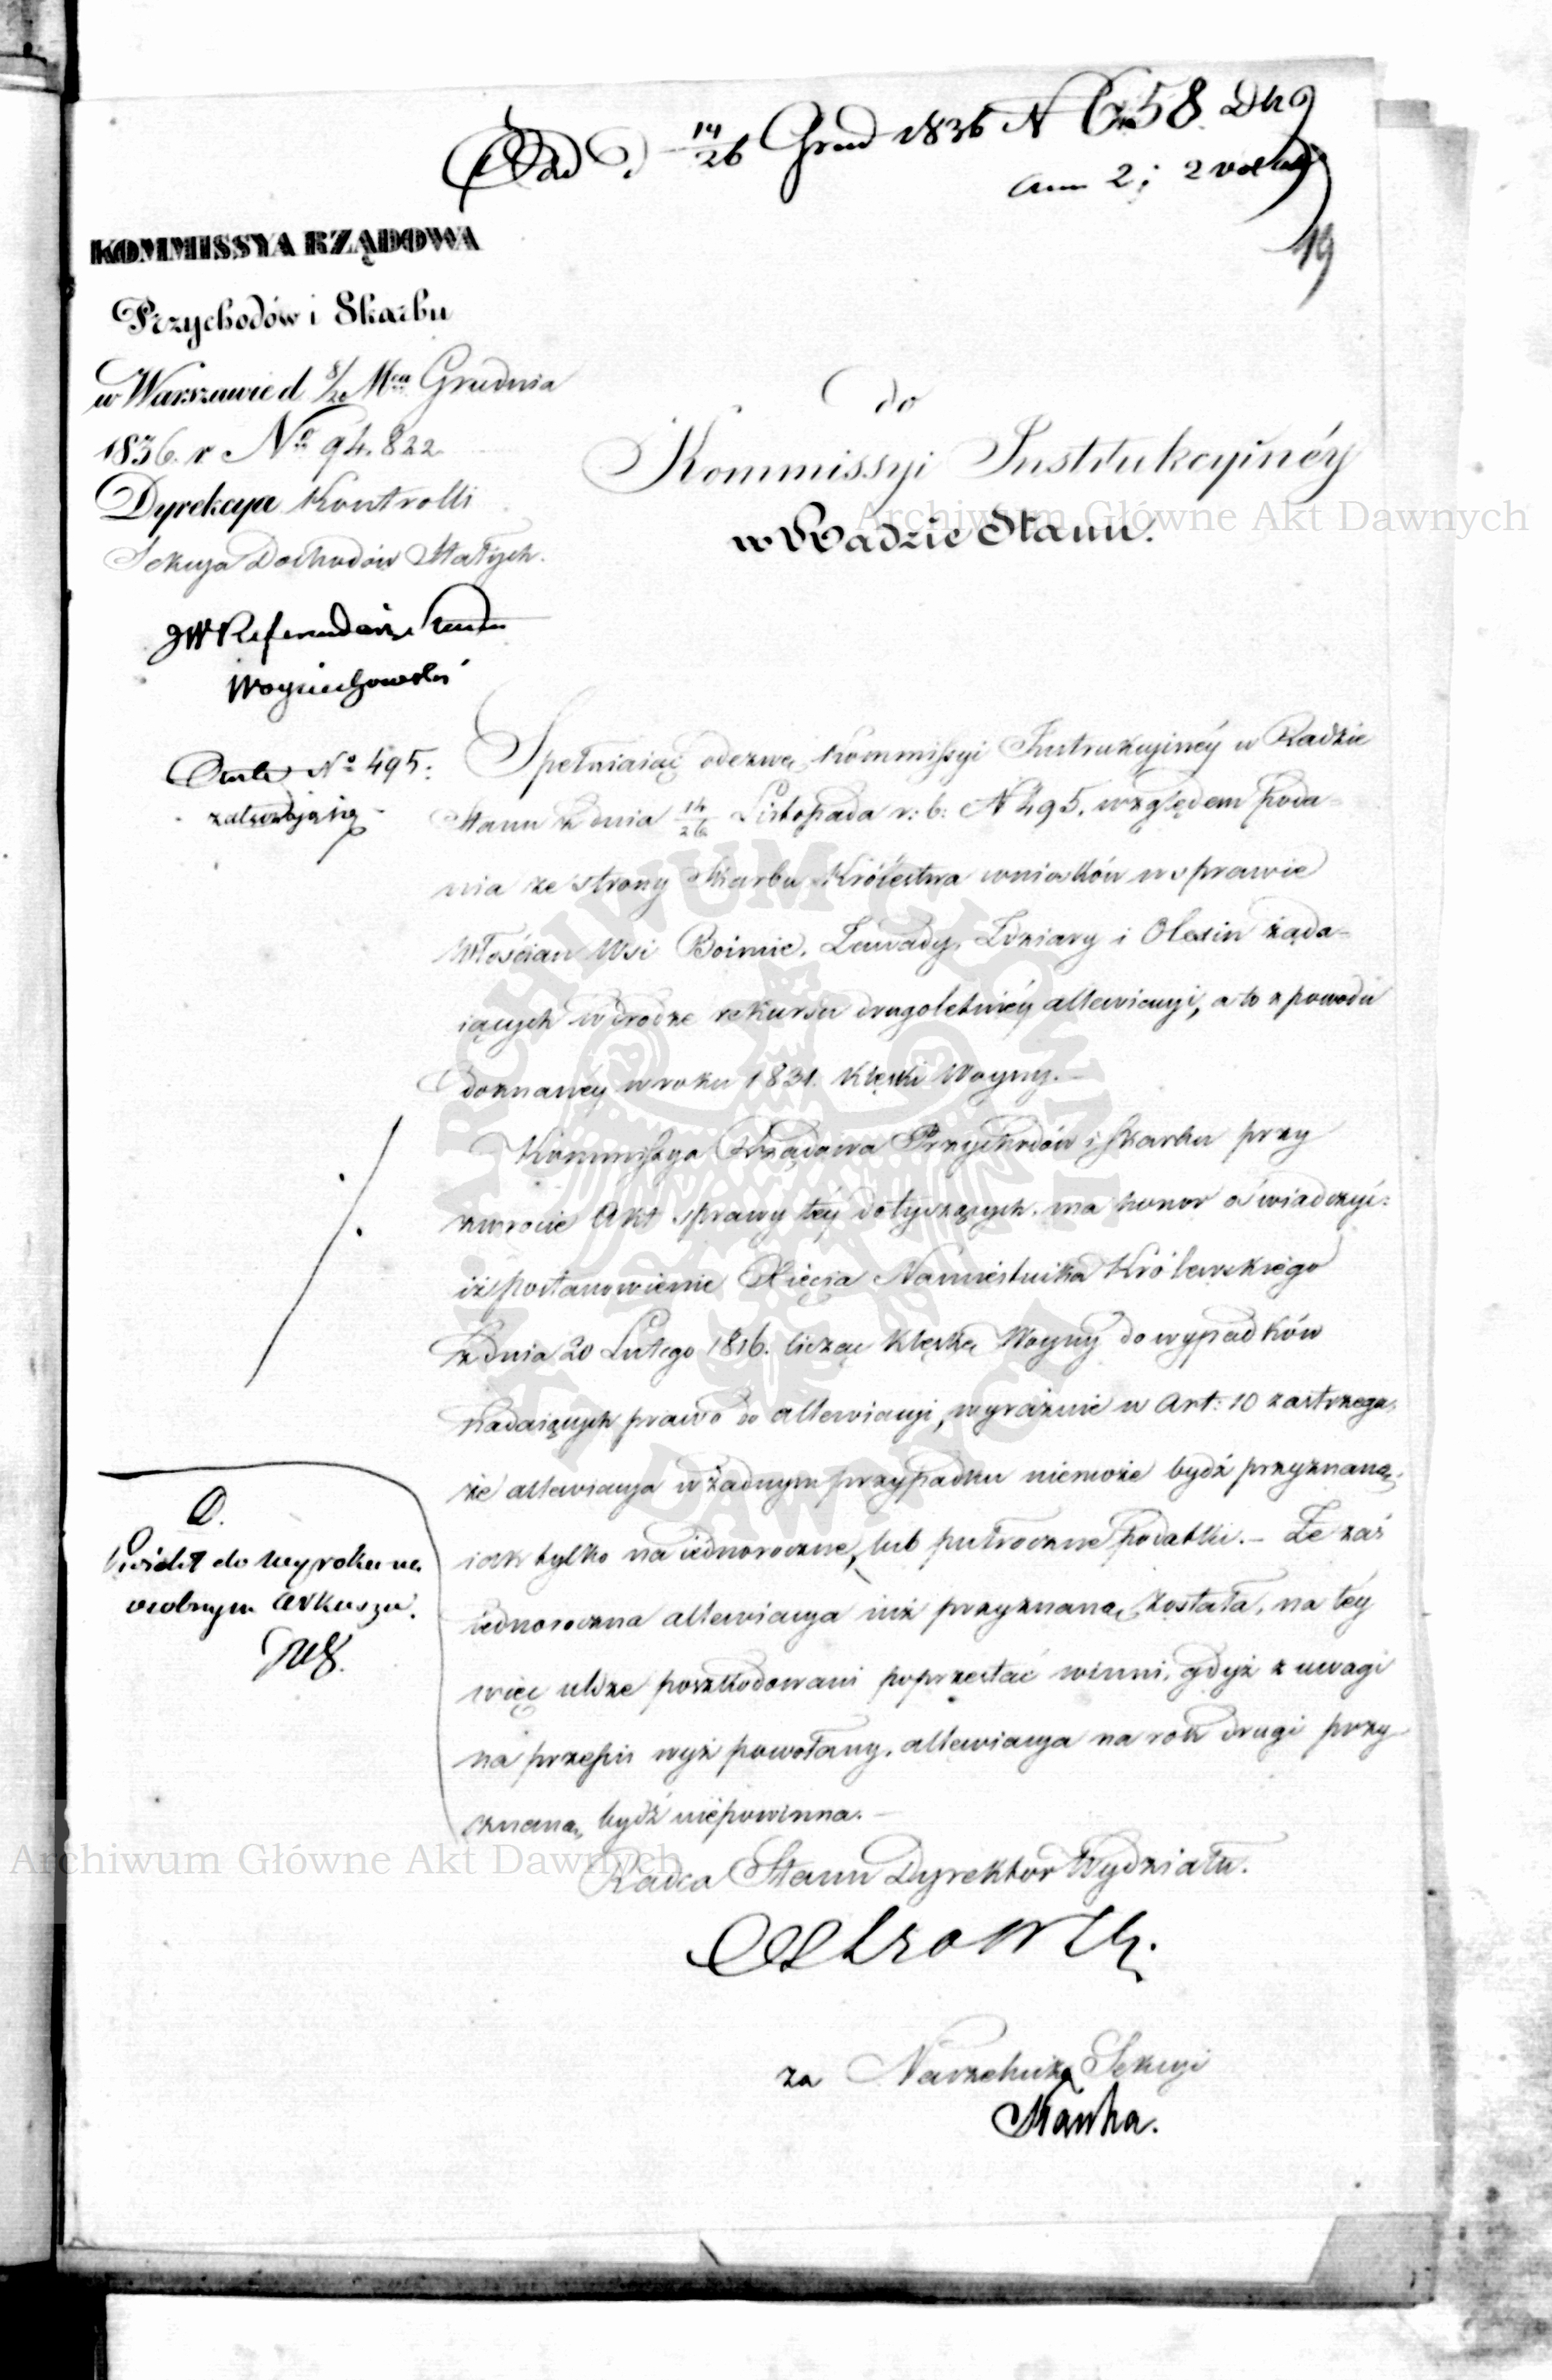 Odd D. 14/26 Grud 1836 N 658. Dhg
ann 2; 2 vol
19
KOMMISSYA RZĄDOWA
Przychodów i Skarbu
w Warszawie d 8/20 Mca Grudnia
1836. r. No 94.822.
Dyrekcya Kontrolli
Sekcya Dochodów Stałych.
do
Kommissyi Instrukcyinéy
w Radzie Stanu.
JW Referendarz Stanu
Woyciechowski
No 495:
Spełniaiąc odezwę Kommissyi Instrukcyinéy w Radzie
Stanu z dnia 14/26 Listopada r: b: N 495. względem poda-
nia ze strony Skarbu Królestwa wniosków w sprawie
Włościan Wsi Boimie, Zawady, Zdziary i Olexin żąda-
iących w drodze rekursu drugoletniéy allewiacyi, a to z powodu
doznanéy w roku 1831. klęski Woyny.—
Kommissya Rządowa Przychodów i Skarbu przy
zwrocie Akt sprawy téy dotyczących. ma honor oświadczyć:
iż postanowienie Xięcia Namiestnika Królewskiego
z dnia 20 Lutego 1816. licząc klęskę Woyny do wypadków
nadaiących prawo do allewiacyi, wyraźnie w Art: 10 zastrzega,
że allewiacya w żadnym przypadku niemoże bydź przyznaną,
iak tylko na iednoroczne, lub półroczne podatki.— Że zaś
iednoroczna allewiacya iuż przyznaną została, na téy
więc uldze poszkodowani poprzestać winni, gdyż z uwagi
na przepis wyż powołany, allewiacya na rok drugi przy
znaną bydź niepowinna.—
do wyroku na
osobnym arkuszu.
Radca Stanu Dyrektor Wydziału.
za Naczelnika Sekcyi
Archiwum Główne Akt Dawnych
Archiwum Główne Akt Dawnych
ARCHIWUM GŁÓWNE
AKT DAWNYCH